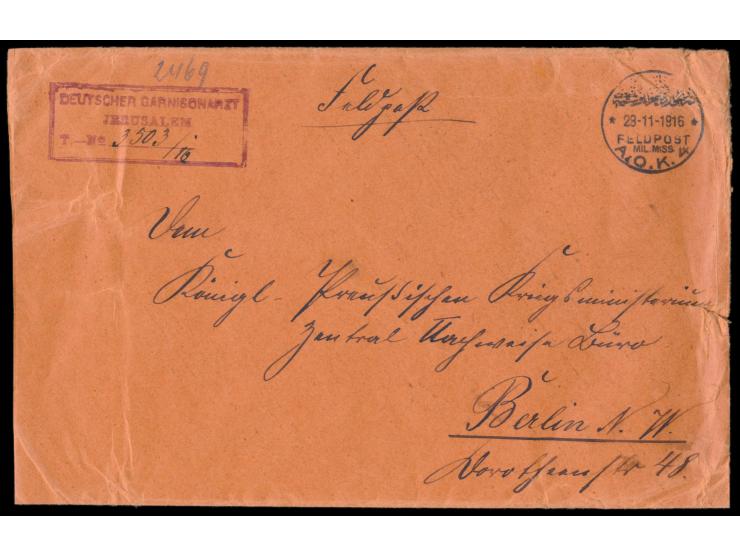 2469
DEUTSCHER GARNISONARZT
JERUSALEM
T.—No 3503/16
Feldpost
* 23-11-1916 *
FELDPOST
MIL. MISS.
A.O.K. 4
Dem
Königl - Preußischen Kriegsministerium
Zentral Nachweise Büro
Berlin N. W.
Dorotheenstr 48.